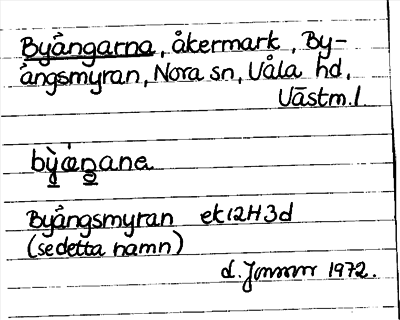 Byångarna, åkermark, By-
ångsmyran, Nora sn, Våla hd.
Västm. l.
Byångsmyran ek 12H3d
(se detta namn)
d. 1972.